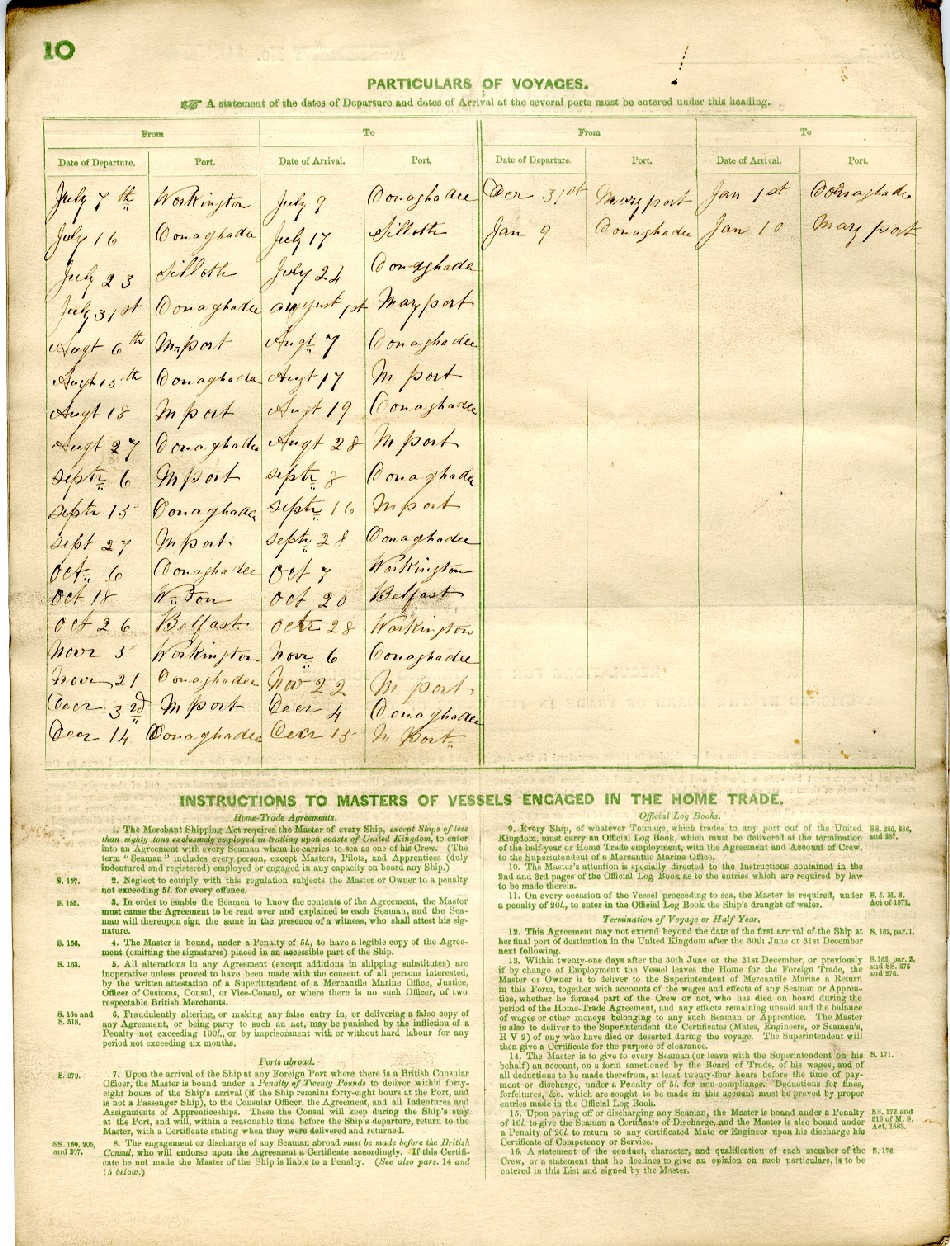 10
PARTICULARS OF VOYAGES.
☞ A statement of the dates of Departure and dates of Arrival at the several ports must be entered under this heading.
From To From To
Date of Departure. Port. Date of Arrival. Port. Date of Departure. Port. Date of Arrival. Port.
July 7th Workington July 9 Donaghadee Decr 31st Maryport Jan 1st Donaghade
July 16 Donaghadee July 17 Silloth Jan 9 Donaghadee Jan 10 Maryport
July 23 Silloth July 24 Donaghadee
July 31st Donaghadee august 1st Maryport
Augt 6th M port Augt 7 Donaghadee
Augt 15th Donaghadee Augt 17 M port
Augt 18 M port Augt 19 Donaghadee
Augt 27 Donaghadee Augt 28 M port
Septr 6 M port Septr 8 Donaghadee
Septr 15 Donaghadee Septr 16 M port
Sept 27 M port Septr 28 Donaghadee
Oct 6 Donaghadee Oct 7 Workington
Oct 18 W..ton Oct 20 Belfast
Oct 26 Belfast Octr 28 Workington
Novr 5 Workington Novr 6 Donaghadee
Novr 21 Donaghadee Nov 22 M port
Decr 3rd M port Decr 4 Donaghadee
Decr 14 Donaghadee Decr 15 M Port
INSTRUCTIONS TO MASTERS OF VESSELS ENGAGED IN THE HOME TRADE.
Home-Trade Agreements.
1. The Merchant Shipping Act requires the Master of every Ship, except Ships of less
than eighty tons exclusively employed in trading upon coasts of United Kingdom, to enter
into an Agreement with every Seaman whom he carries to sea as one of his Crew. (The
term "Seaman" includes every person, except Masters, Pilots, and Apprentices (duly
indentured and registered) employed or engaged in any capacity on board any Ship.)
S. 157. 2. Neglect to comply with this regulation subjects the Master or Owner to a penalty
not exceeding 5l. for every offence.
3. In order to enable the Seamen to know the contents of the Agreement, the Master
must cause the Agreement to be read over and explained to each Seaman, and the Sea-
man will thereupon sign the same in the presence of a witness, who shall attest his sig-
nature.
4. The Master is bound, under a Penalty of 5l., to have a legible copy of the Agree-
ment (omitting the signatures) placed in an accessible part of the Ship.
S. 163. 5. All alterations in any Agreement (except additions in shipping substitutes) are
inoperative unless proved to have been made with the consent of all persons interested,
by the written attestation of a Superintendent of a Mercantile Marine Office, Justice,
Officer of Customs, Consul, or Vice-Consul, or where there is no such Officer, of two
respectable British Merchants.
6. Fraudulently altering, or making any false entry in, or delivering a false copy of
any Agreement, or being party to such an act, may be punished by the infliction of a
Penalty not exceeding 100l., or by imprisonment with or without hard labour for any
period not exceeding six months.
Ports abroad.
7. Upon the arrival of the Ship at any Foreign Port where there is a British Consular
Officer, the Master is bound under a Penalty of Twenty Pounds to deliver within forty-
eight hours of the Ship's arrival (if the Ship remains forty-eight hours at the Port, and
is not a Passenger Ship), to the Consular Officer, the Agreement, and all Indentures and
Assignments of Apprenticeships. These the Consul will keep during the Ship's stay
at the Port, and will, within a reasonable time before the Ship's departure, return to the
Master, with a Certificate stating when they were delivered and returned.
8. The engagement or discharge of any Seaman abroad must be made before the British
Consul, who will endorse upon the Agreement a Certificate accordingly. If this Certifi-
cate be not made the Master of the Ship is liable to a Penalty. (See also pars. 14 and
15 below.)
Official Log Books.
9. Every Ship, of whatever Tonnage, which trades to any port out of the United
Kingdom, must carry an Official Log Book, which must be delivered at the termination
of the half-year or Home Trade employment, with the Agreement and Account of Crew,
to the Superintendent of a Mercantile Marine Office.
10. The Master's attention is specially directed to the Instructions contained in the
2nd and 3rd pages of the Official Log Book as to the entries which are required by law
to be made therein.
11. On every occasion of the Vessel proceeding to sea, the Master is required, under
a penalty of 20l., to enter in the Official Log Book the Ship's draught of water.
Termination of Voyage or Half Year.
12. This Agreement may not extend beyond the date of the first arrival of the Ship at
her final port of destination in the United Kingdom after the 30th June or 31st December
next following.
13. Within twenty-one days after the 30th June or the 31st December, or previously
if by change of Employment the Vessel leaves the Home for the Foreign Trade, the
Master or Owner is to deliver to the Superintendent of Mercantile Marine a Return
in this Form, together with accounts of the wages and effects of any Seaman or Appren-
tice, whether he formed part of the Crew or not, who has died on board during the
period of the Home-Trade Agreement, and any effects remaining unsold and the balance
of wages or other moneys belonging to any such Seaman or Apprentice. The Master
is also to deliver to the Superintendent the Certificates (Mates, Engineers, or Seamen's,
R V 2) of any who have died or deserted during the voyage. The Superintendent will
then give a Certificate for the purpose of clearance.
14. The Master is to give to every Seaman (or leave with the Superintendent on his S. 171.
behalf) an account, on a form sanctioned by the Board of Trade, of his wages, and of
all deductions to be made therefrom, at least twenty-four hours before the time of pay-
ment or discharge, under a Penalty of 5l. for non-compliance. Deductions for fines,
forfeitures, &c. which are sought to be made in this account must be proved by proper
entries made in the Official Log Book.
15. Upon paying off or discharging any Seaman, the Master is bound under a Penalty
of 10l. to give the Seaman a Certificate of Discharge, and the Master is also bound under
a Penalty of 20l. to return to any certificated Mate or Engineer upon his discharge his
Certificate of Competency or Service.
16. A statement of the conduct, character, and qualification of each member of the
Crew, or a statement that he declines to give an opinion on such particulars, is to be
entered in this List and signed by the Master.